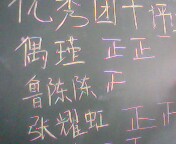 优秀团干评
偶瑾 正正
鲁陈陈 正
张耀虹 正正